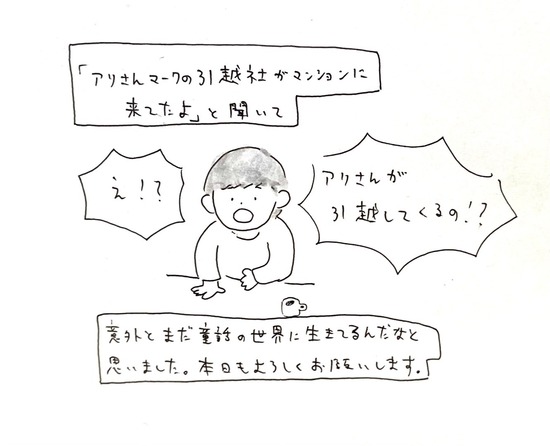 「アリさんマークの引越社がマンションに
来てたよ」と聞いて
え!?
アリさんが
引越してくるの!?
意外とまだ童話の世界に生きてるんだなと
思いました。本日もよろしくお願いします。